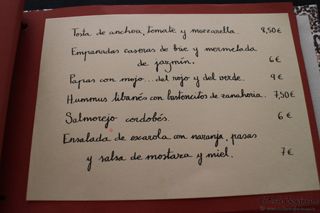 Tosta de anchoa, tomate y mozzarella. 8,50€
Empanadas caseras de brie y mermelada
de jazmín. 6€
Papas con mojo...del rojo y del verde. 9€
Hummus libanés con bastoncitos de zanahoria. 7,50€
Salmorejo cordobés. 6€
Ensalada de escarola con naranja, pasas
y salsa de mostaza y miel. 7€